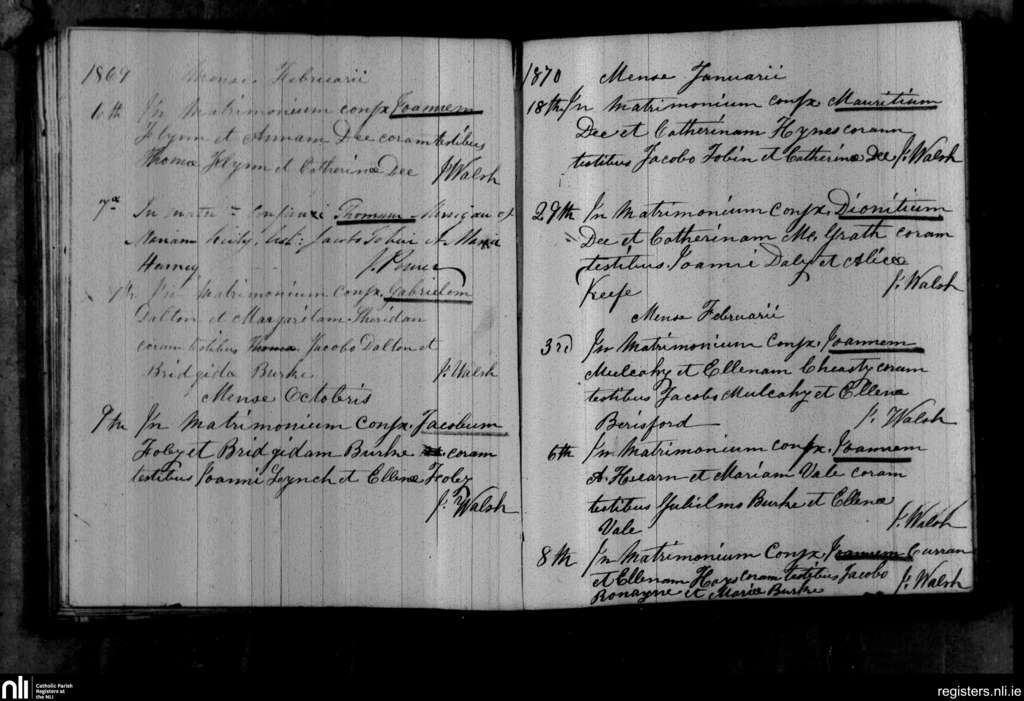 1869 Mense Februarii
6th In Matrimonium conjx Joannem
Flynn et Annam Dee coram testibus
Thoma Flynn et Catherinæ Dee J. Walsh
7a In matr= Thomam
Mariam test: Jacobo Tobin et Maria
J. Power
9th In Matrimonium conjx. Gabrielem
Dalton et Margaritam Sheridan
coram testibus Thoma Jacobo Dalton et
Bridgida Burke J. Walsh
Mense Octobris
9th In Matrimonium conjx. Jacobum
Foley et Bridgidam Burke coram
testibus Joanni Lynch et Ellenæ Foley
J. Walsh
1870 Mense Januarii
18th In Matrimonium conjx Mauritium
Dee et Catherinam Hynes coram
testibus Jacobo Tobin et Catherinæ Dee J. Walsh
29th In Matrimonium conjx. Dionitium
Dee et Catherinam Mc Grath coram
testibus Joanni Daly et Aliciæ
Keefe J. Walsh
Mense Februarii
3rd In Matrimonium Conjx. Joannem
Mulcahy et Ellenam Cheasty coram
testibus Jacobo Mulcahy et Ellenæ
Berisford J. Walsh
6th In Matrimonium conjx. Joannem
A. Hearn et Mariam Vale coram
testibus Gulielmo Burke et Ellenæ
Vale J. Walsh
8th In Matrimonium Conjx Joannem Curran
et Ellenam Hays coram testibus Jacobo
Ronayne et Mariæ Burke J. Walsh
nli
Catholic Parish
Registers at
the NLI
registers.nli.ie